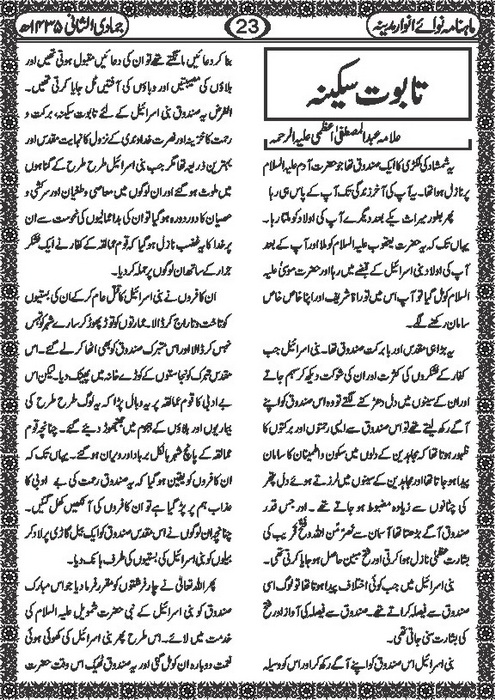 ماہنامہ نوائے انوار مدینہ
23
جمادی الثانی ۱۴۳۵ھ
تابوت سکینہ
علامہ عبدالمصطفیٰ اعظمی علیہ الرحمہ
یہ شمشاد کی لکڑی کا ایک صندوق تھا جو حضرت آدم علیہ السلام
پر نازل ہوا تھا۔ یہ آپ کی آخر زندگی تک آپ کے پاس ہی رہا
پھر بطور میراث یکے بعد دیگرے آپ کی اولاد کو ملتا رہا۔
یہاں تک کہ یہ حضرت یعقوب علیہ السلام کو ملا اور آپ کے بعد
آپ کی اولاد بنی اسرائیل کے قبضے میں رہا اور حضرت موسیٰ علیہ
السلام کو مل گیا تو آپ اس میں توراۃ شریف اور اپنا خاص خاص
سامان رکھنے لگے۔
یہ بڑا ہی مقدس اور با برکت صندوق تھا۔ بنی اسرائیل جب
کفار کے لشکروں کی کثرت اور ان کی شوکت دیکھ کر سہم جاتے
اور ان کے سینوں میں دل دھڑکنے لگتے تو وہ اس صندوق کو اپنے
آگے رکھ لیتے تھے تو اس صندوق سے ایسی رحمتوں اور برکتوں کا
ظہور ہوتا تھا کہ مجاہدین کے دلوں میں سکون و اطمینان کا سامان
پیدا ہوتا تھا اور مجاہدین کے سینوں میں لرزتے ہوئے دل پتھر
کی چٹانوں سے زیادہ مضبوط ہو جاتے تھے۔ اور جس قدر
صندوق آگے بڑھتا تھا آسمان سے نصر من اللہ وفتح قریب کی
بشارت عظمیٰ نازل ہوا کرتی اور فتح مبین حاصل ہو جایا کرتی تھی۔
بنی اسرائیل میں جب کوئی اختلاف پیدا ہوتا تھا تو لوگ اسی
صندوق سے فیصلہ کراتے تھے۔ صندوق سے فیصلہ کی آواز اور فتح
کی بشارت سنی جاتی تھی۔
بنی اسرائیل اس صندوق کو اپنے آگے رکھ کر اور اس کو وسیلہ
بنا کر دعائیں مانگتے تھے تو ان کی دعائیں مقبول ہوتی تھیں اور
بلاؤں کی مصیبتیں اور وباؤں کی آفتیں ٹل جایا کرتی تھیں۔
الغرض یہ صندوق بنی اسرائیل کے لئے تابوت سکینہ، برکت و
رحمت کا خزینہ اور نصرت خداوندی کے نزول کا نہایت مقدس اور
بہترین ذریعہ تھا مگر جب بنی اسرائیل طرح طرح کے گناہوں
میں ملوث ہو گئے اور ان لوگوں میں معاصی و طغیان اور سرکشی و
عصیان کا دور دورہ ہو گیا تو ان کی بداعمالیوں کی نحوست سے ان
پر خدا کا یہ غضب نازل ہو گیا کہ قوم عمالقہ کے کفار نے ایک لشکر
جرار کے ساتھ ان لوگوں پر حملہ کر دیا۔
ان کافروں نے بنی اسرائیل کا قتل عام کر کے ان کی بستیوں
کو تاخت و تاراج کر ڈالا۔ عمارتوں کو توڑ پھوڑ کر سارے شہر کو تہس
نہس کر ڈالا اور اس متبرک صندوق کو بھی اٹھا کر لے گئے۔ اس
مقدس تبرک کو نجاستوں کے کوڑے خانہ میں پھینک دیا۔ لیکن اس
بے ادبی کا قوم عمالقہ پر یہ وبال پڑا کہ یہ لوگ طرح طرح کی
بیماریوں اور بلاؤں کے ہجوم میں جھنجھوڑ دیئے گئے۔ چنانچہ قوم
عمالقہ کے پانچ شہر بالکل برباد اور ویران ہو گئے۔ یہاں تک کہ
ان کافروں کو یقین ہو گیا کہ یہ صندوق رحمت کی بے ادبی کا
عذاب ہم پر پڑ گیا ہے تو ان کافروں کی آنکھیں کھل گئیں۔
چنانچہ ان لوگوں نے اس مقدس صندوق کو ایک بیل گاڑی پر لاد کر
بیلوں کو بنی اسرائیل کی بستیوں کی طرف ہانک دیا۔
پھر اللہ تعالیٰ نے چار فرشتوں کو مقرر فرما دیا جو اس مبارک
صندوق کو بنی اسرائیل کے نبی حضرت شمویل علیہ السلام کی
خدمت میں لائے۔ اس طرح پھر بنی اسرائیل کی کھوئی ہوئی
نعمت دوبارہ ان کو مل گئی اور یہ صندوق ٹھیک اس وقت حضرت